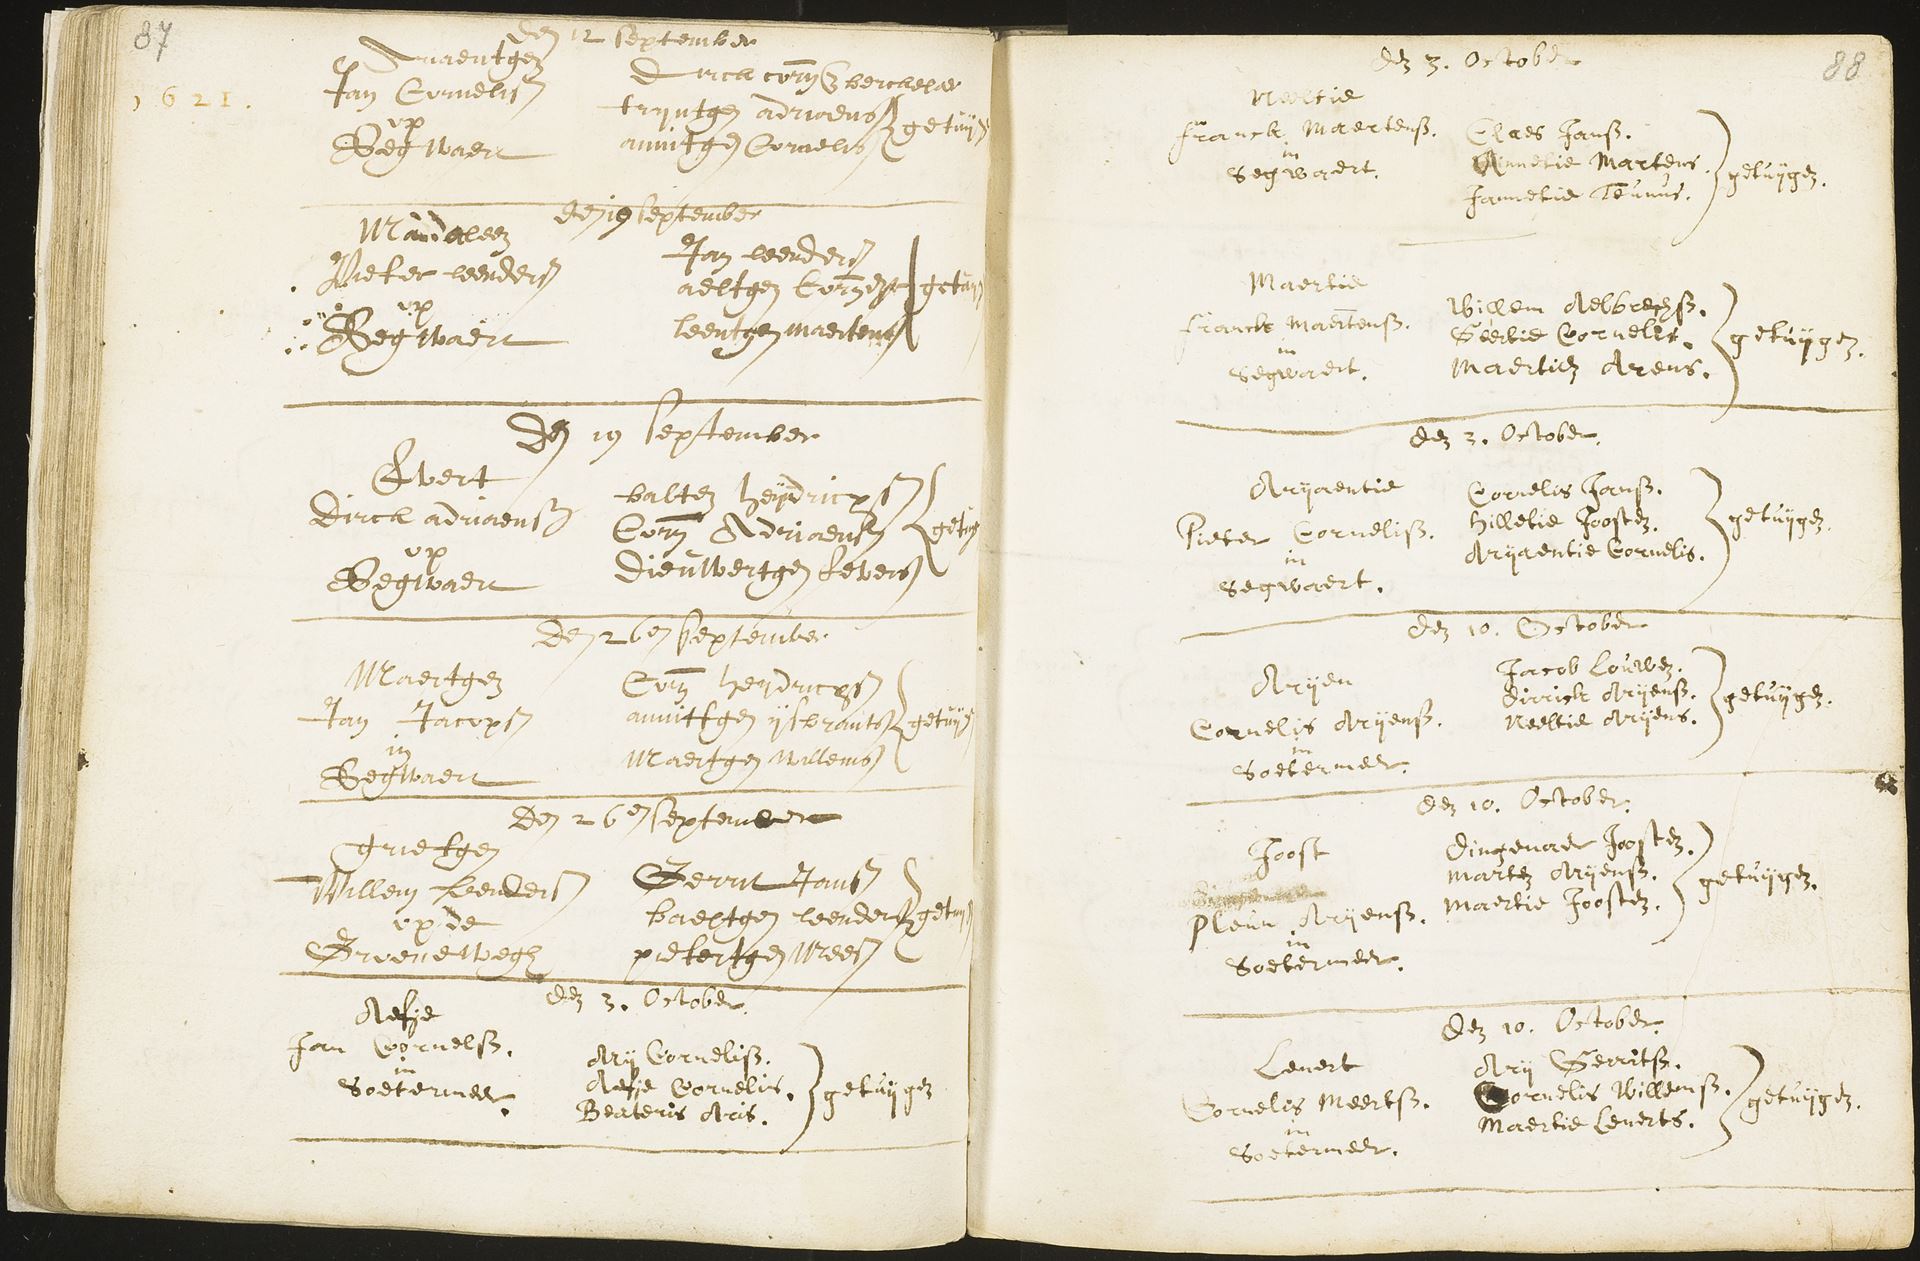 87
1621.
den 12 September
Ariaentgen
Jan Cornelisz
op
Segwaert
Dirck Corn
tryntgen adriaens
annitgen Cornelis
getuijg
den 19 September
Magdaleen
Pieter leendersz
op
Segwaert
Jan leendersz
aeltgen
leentgen maertens
getuijg
Den 19 September
Evert
Dirck adriaensz
op
Segwaert
balten heyndricxsz
Corn Adriaensz
Dieuwertgen
getuijg
Den 26en September
Maertgen
Jan Jacopsz
in
Segwaert
Corn heyndricxsz
annittgen ysbrants
Maertgen willems
getuijg
Den 26en September
grietgen
Willem leendersz
op de
Groenewegh
Gerrit Jansz
baeltgen leenders
pietertgen Mees
getuijg
den 3. October.
Aefje
Jan Cornelsz.
in
Soetermeer.
Arij Cornelisz.
Aefje Cornelis.
Beateris Aris.
getuijgen
88
den 3. October
Neeltie
franck Maertensz.
in
Segwaert.
Claes Jansz.
Annetie Martens.
Jannetie Teunus.
getuijgen.
Maertie
franck Maertensz.
in
Segwaert.
Willem Aelbrechsz.
Geertie Cornelis.
Maertien Arens.
getuijgen.
den 3. October.
Aryaentie
Pieter Cornelisz.
in
Segwaert.
Cornelis Jansz.
Hilletie Joosten.
Aryaentie Cornelis.
getuijgen.
den 10. October
Aryen
Cornelis Aryensz.
in
Soetermeer.
Jacob Louwen.
Dirrick Aryensz.
Neeltie Aryens.
getuijgen.
den 10. October.
Joost
Pleun Aryensz.
in
Soetermeer.
Dingenaer Joosten.
Marten Aryensz.
Maertie Joosten.
getuijgen.
Den 10. October.
Lenert
Cornelis Meertsz.
in
Soetermeer.
Ary Gerritsz.
Cornelis Willemsz.
Maertie Lenerts.
getuijgen.